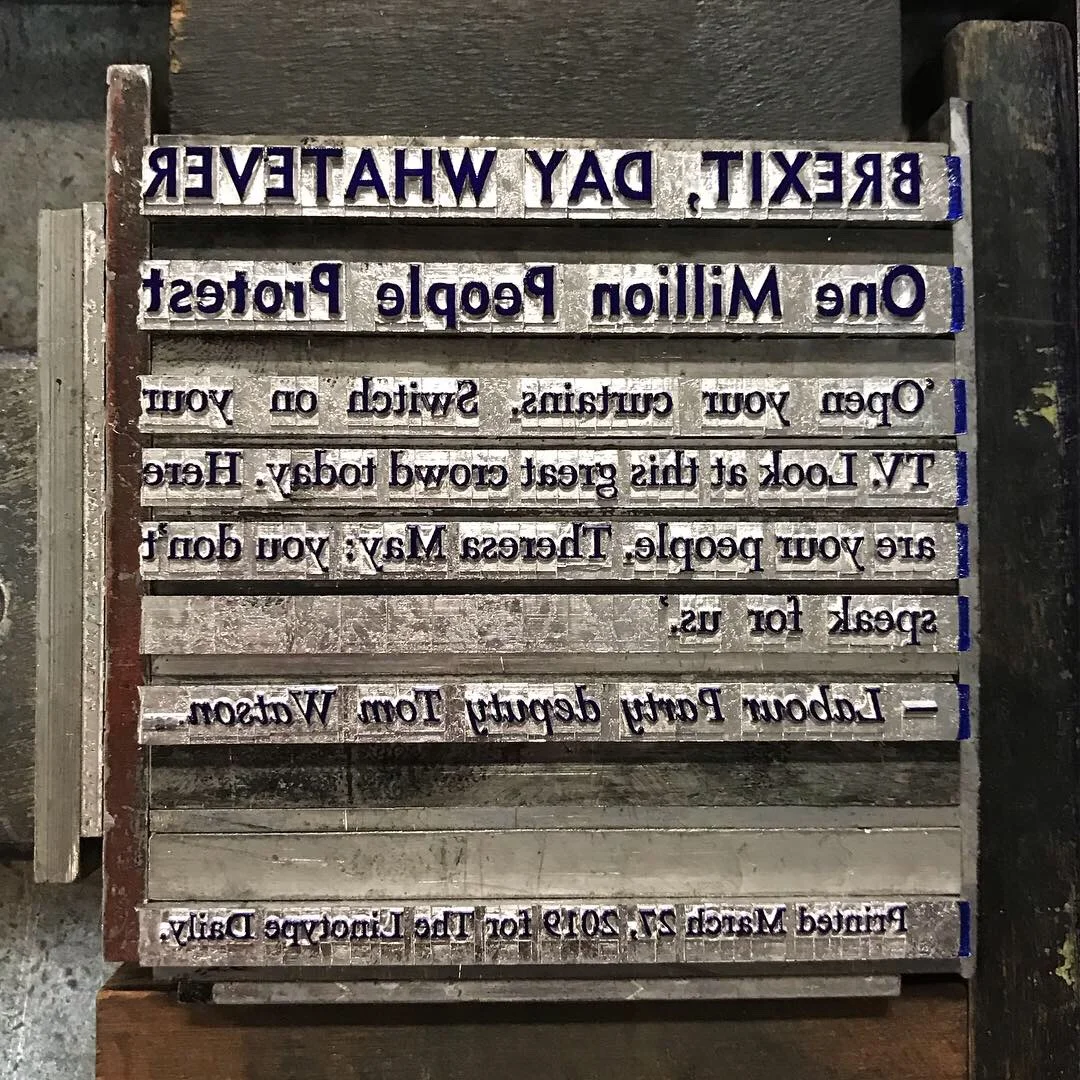 BREXIT, DAY WHATEVER
One Million People Protest
‘Open your curtains. Switch on your
TV. Look at this great crowd today. Here
are your people. Theresa May: you don’t
speak for us.’
— Labour Party deputy Tom Watson.
Printed March 27, 2019 for The Linotype Daily.